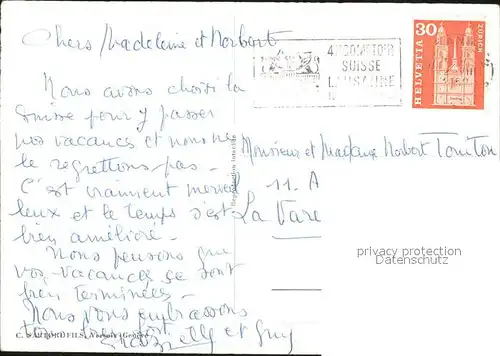 Chers Madeleine et Norbert
Nous avons choisi la
Suisse pour y passer
nos vacances et nous ne
le regrettons pas -
C'est vraiment merveil
leux et le temps s'est
bien amélioré -
Nous pensons que
vos vacances se sont
bien terminées -
Nous vous embrassons
tous très fort
et Guy
COMPTOIR
SUISSE
LAUSANNE
30
HELVETIA
ZÜRICH
Monsieur et Madame Norbert
11. A
La Vare
privacy protection
Datenschutz
Reproduction interdite